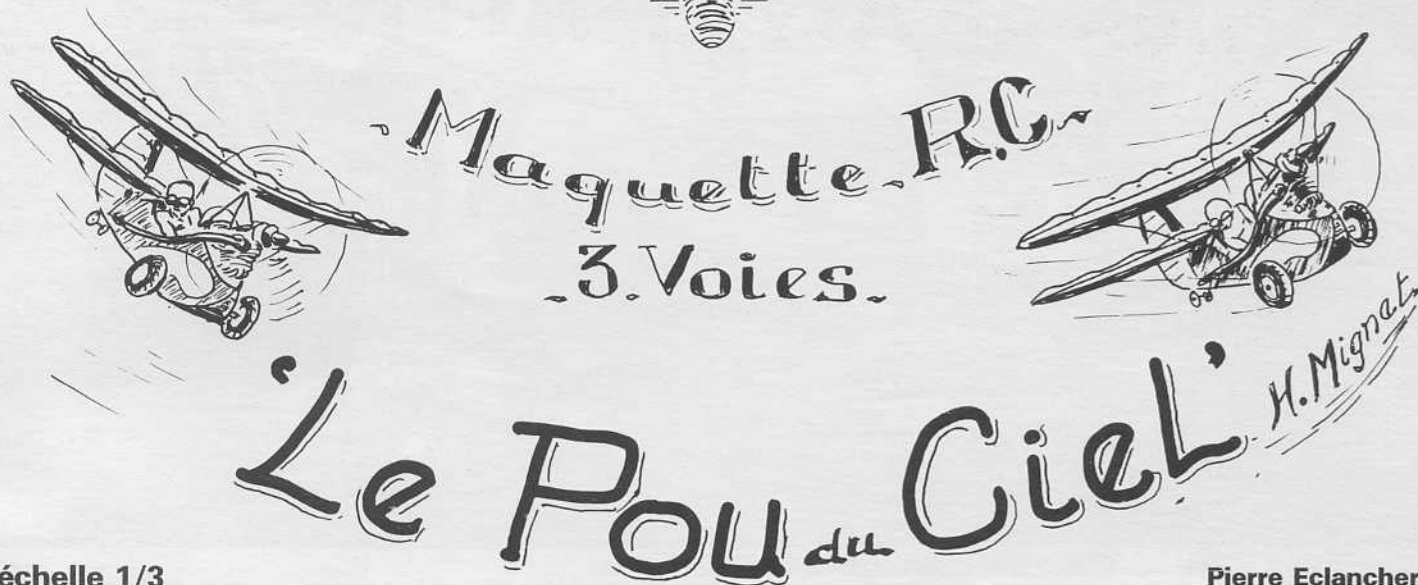 Maquette.R.C.
3.Voies.
'Le Pou du Ciel'
H.Mignet
échelle 1/3
Pierre Eclancher